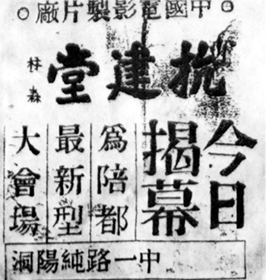 中國電影製片廠
抗建堂
林森
今日
揭幕
為陪都
最新型
大會場
中一路純陽洞